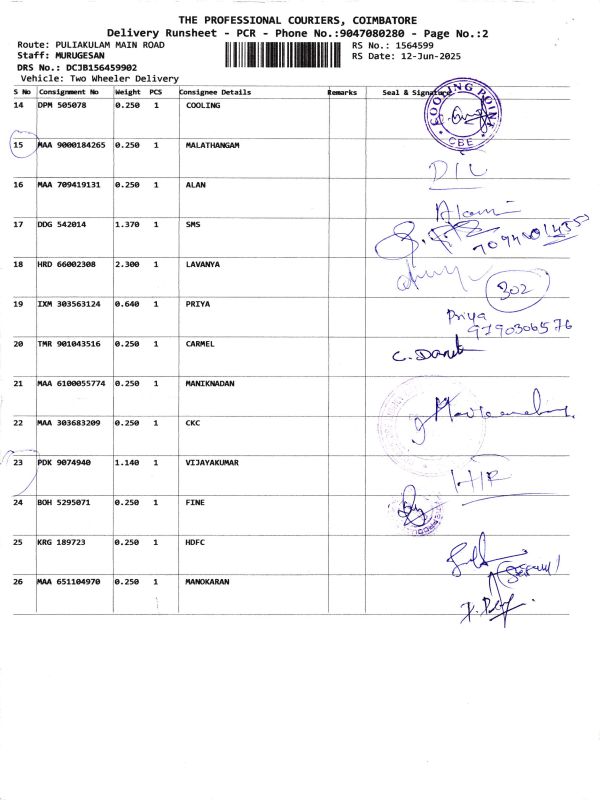 THE PROFESSIONAL COURIERS, COIMBATORE
Delivery Runsheet - PCR - Phone No.:9047080280 - Page No.:2
Route: PULIAKULAM MAIN ROAD RS No.: 1564599
Staff: MURUGESAN RS Date: 12-Jun-2025
DRS No.: DCJB156459902
Vehicle: Two Wheeler Delivery
S No Consignment No Weight PCS Consignee Details Remarks Seal & Signature
14 DPM 505078 0.250 1 COOLING
COOLING POINT
CBE
15 MAA 9000184265 0.250 1 MALATHANGAM
D/L
16 MAA 709419131 0.250 1 ALAN
17 DDG 542014 1.370 1 SMS
18 HRD 66002308 2.300 1 LAVANYA
302
19 IXM 303563124 0.640 1 PRIYA
Priya
9790306576
20 TMR 901043516 0.250 1 CARMEL
21 MAA 6100055774 0.250 1 MANIKNADAN
22 MAA 303683209 0.250 1 CKC
23 PDK 9074940 1.140 1 VIJAYAKUMAR
24 BOH 5295071 0.250 1 FINE
25 KRG 189723 0.250 1 HDFC
26 MAA 651104970 0.250 1 MANOKARAN